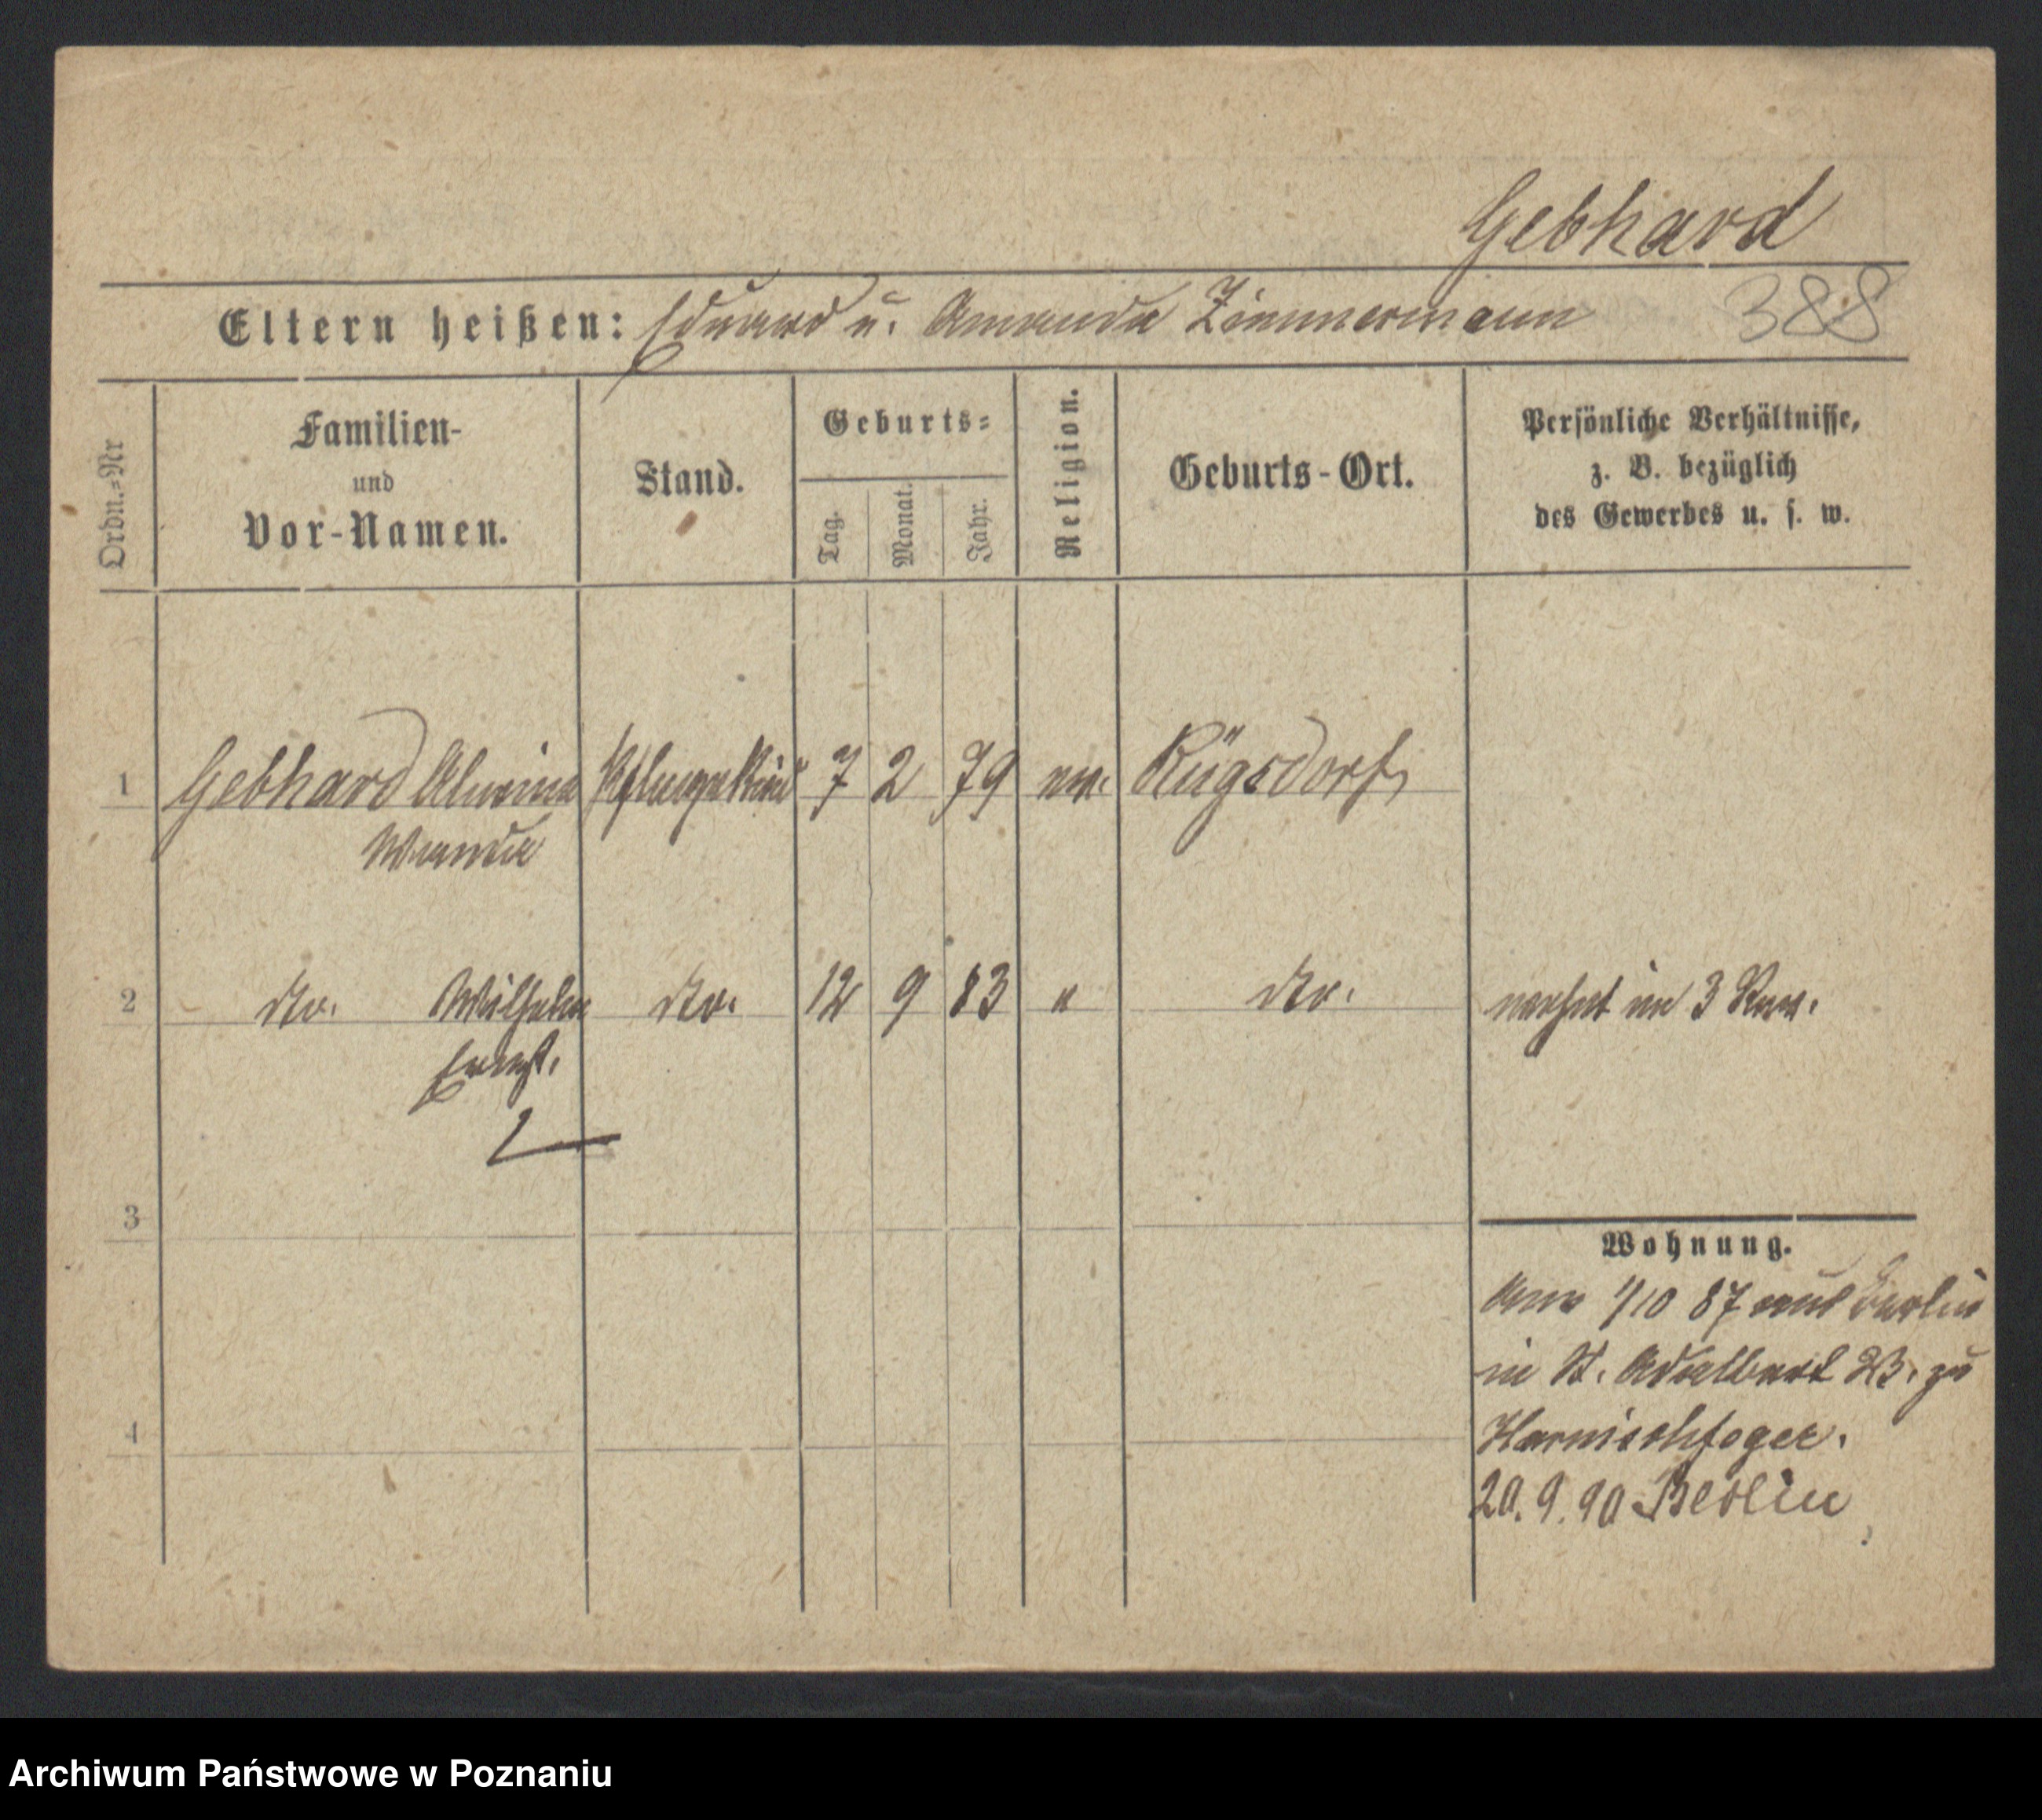 Gebhard
388
Eltern heißen: Eduard u. Amanda Zimmermann
Ordn.-Nr
Familien-
und
Vor-Namen.
Stand.
Geburts-
Tag.
Monat.
Jahr.
Religion.
Geburts-Ort.
Persönliche Verhältnisse,
z. B. bezüglich
des Gewerbes u. s. w.
1 Gebhard Alwina Pflegekind 7 2 79 ev. Rügsdorf
Wanda
2 do. Wilhelm do. 12 9 83 " do. wohnt in 3 Rev.
Ernst.
3
Wohnung.
Am 1/10 87 aus Berlin
in St. Adalbert 23. zu
4
Harnischfeger.
20. 9. 90 Berlin
Archiwum Państwowe w Poznaniu